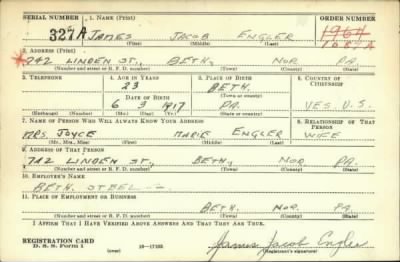 SERIAL NUMBER 1. NAME (Print) ORDER NUMBER
327A JAMES JACOB ENGLER 1964
(First) (Middle) (Last) 1057A
2. ADDRESS (Print)
742 LINDEN ST., BETH, NOR PA.
(Number and street or R. F. D. number) (Town) (County) (State)
3. TELEPHONE 4. AGE IN YEARS 5. PLACE OF BIRTH 6. COUNTRY OF CITIZENSHIP
23 BETH.
DATE OF BIRTH (Town or county)
6 3 1917 PA. YES. U.S.
(Exchange) (Number) (Mo.) (Day) (Yr.) (State or country)
7. NAME OF PERSON WHO WILL ALWAYS KNOW YOUR ADDRESS 8. RELATIONSHIP OF THAT PERSON
MRS. JOYCE MARIE ENGLER WIFE
(Mr., Mrs., Miss) (First) (Middle) (Last)
9. ADDRESS OF THAT PERSON
742 LINDEN ST., BETH, NOR. PA.
(Number and street or R. F. D. number) (Town) (County) (State)
10. EMPLOYER'S NAME
BETH. STEEL
11. PLACE OF EMPLOYMENT OR BUSINESS
BETH NOR. PA.
(Number and street or R. F. D. number) (Town) (County) (State)
I AFFIRM THAT I HAVE VERIFIED ABOVE ANSWERS AND THAT THEY ARE TRUE.
REGISTRATION CARD
D. S. S. Form 1 (over) 16-17105 James Jacob Engler
(Registrant's signature)